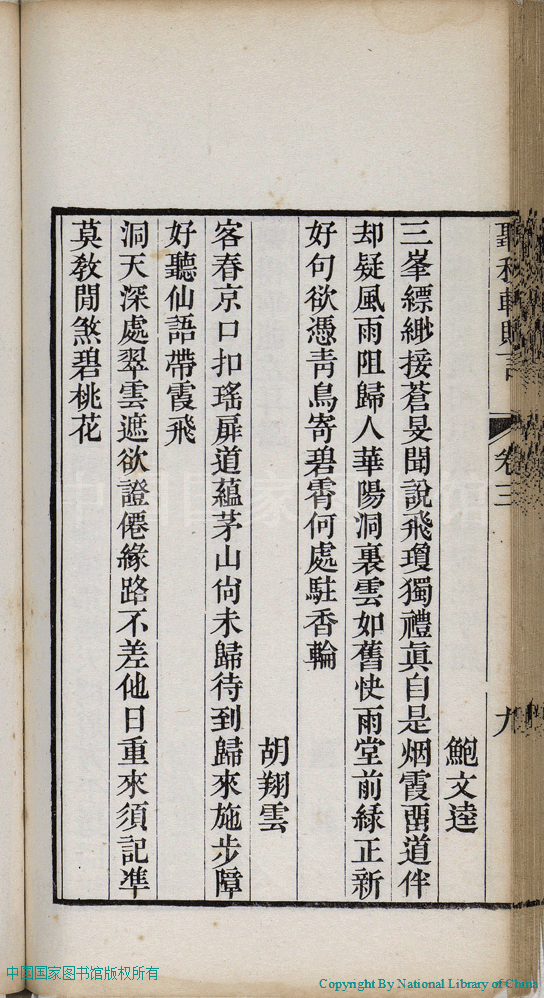 聽秋軒贈言
卷三
九
鮑文逵
三峯縹緲接蒼旻聞說飛瓊獨禮眞自是烟霞畱道伴
却疑風雨阻歸人華陽洞裏雲如舊快雨堂前綠正新
好句欲憑靑鳥寄碧霄何處駐香輪
胡翔雲
客春京口扣瑤扉道蘊茅山尙未歸待到歸來施步障
好聽仙語帶霞飛
洞天深處翠雲遮欲證僊緣路不差他日重來須記準
莫敎閒煞碧桃花
中国国家图书馆
中国国家图书馆版权所有
Copyright By National Library of China